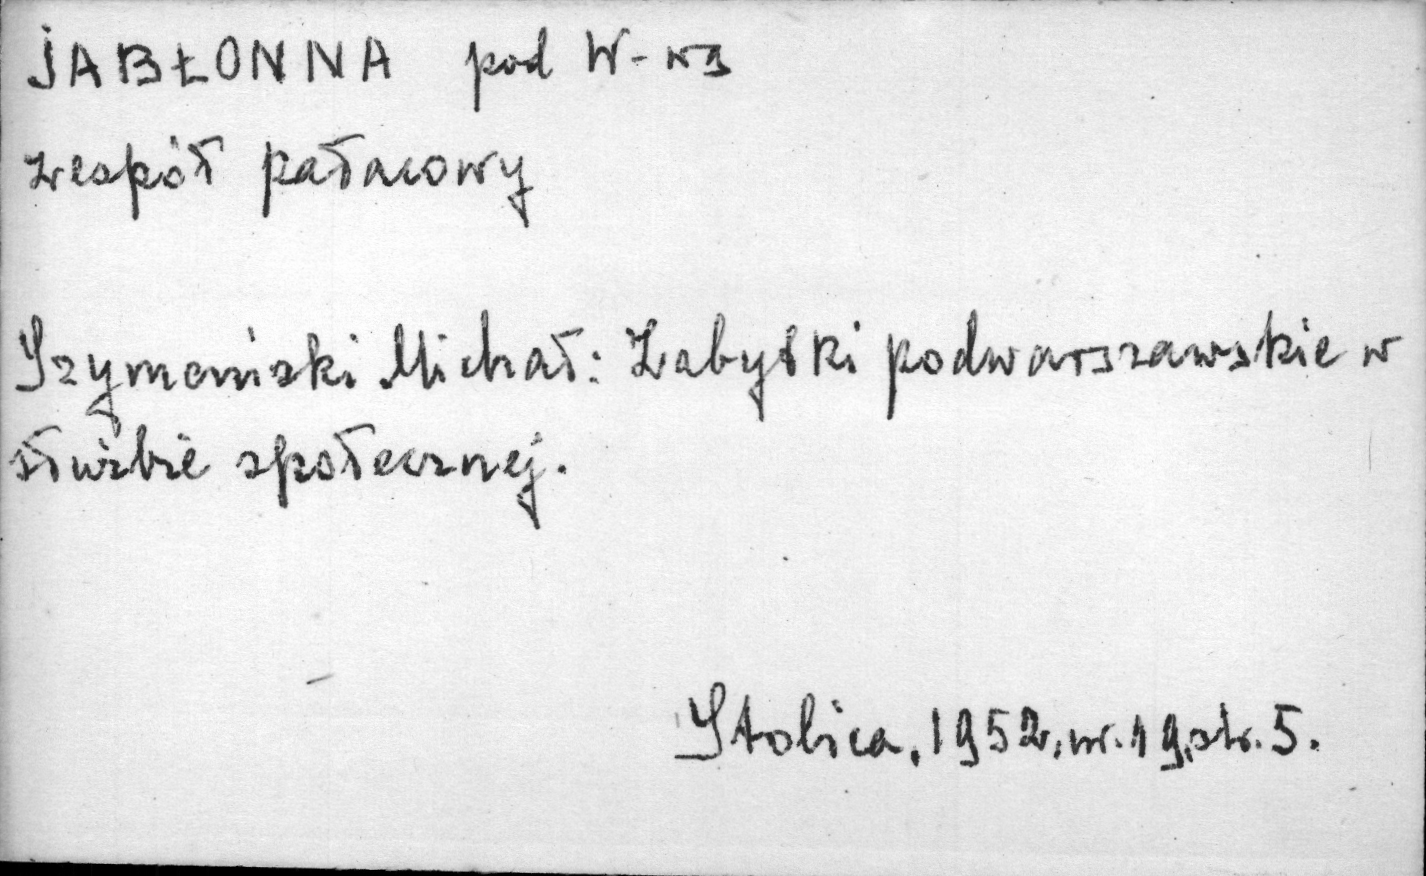 JABŁONNA pod W-wą
zespół pałacowy
Szymański Michał: Zabytki podwarszawskie w
służbie społecznej.
Stolica, 1952, nr. 19, str. 5.